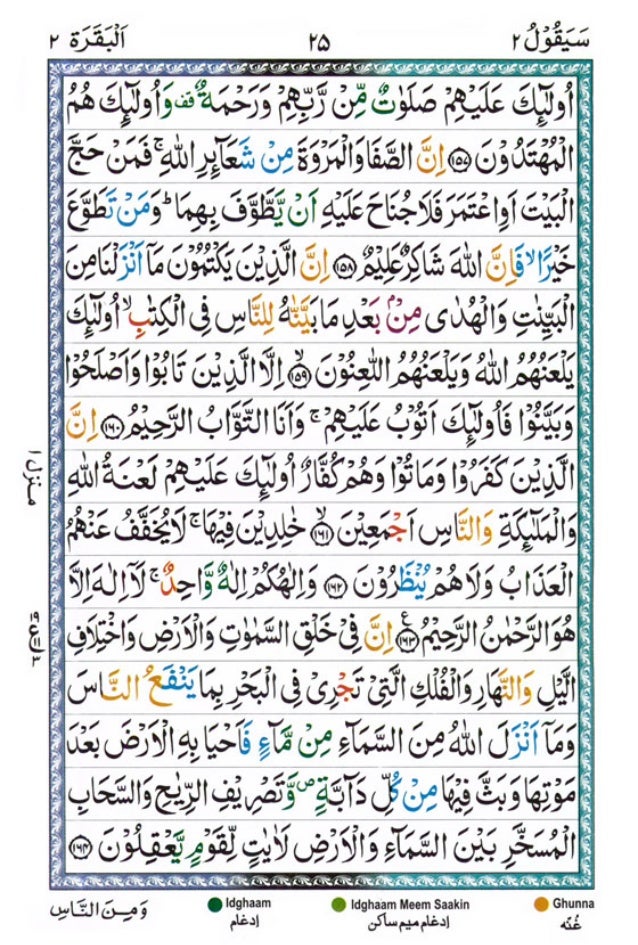 سَيَقُوْلُ ٢ ٢٥ اَلْبَقَرَة ٢
اُولٰٓئِكَ عَلَيْهِمْ صَلَوٰتٌ مِّنْ رَّبِّهِمْ وَرَحْمَةٌ ۟قف وَاُولٰٓئِكَ هُمُ
الْمُهْتَدُوْنَ ﴿١٥٧﴾ اِنَّ الصَّفَا وَالْمَرْوَةَ مِنْ شَعَآئِرِ اللّٰهِ ۚ فَمَنْ حَجَّ
الْبَيْتَ اَوِاعْتَمَرَ فَلَا جُنَاحَ عَلَيْهِ اَنْ يَّطَّوَّفَ بِهِمَا ؕ وَمَنْ تَطَوَّعَ
خَيْرًا ۙ فَاِنَّ اللّٰهَ شَاكِرٌ عَلِيْمٌ ﴿١٥٨﴾ اِنَّ الَّذِيْنَ يَكْتُمُوْنَ مَاۤ اَنْزَلْنَا مِنَ
الْبَيِّنٰتِ وَالْهُدٰى مِنْۢ بَعْدِ مَا بَيَّنّٰهُ لِلنَّاسِ فِى الْكِتٰبِ ۙ اُولٰٓئِكَ
يَلْعَنُهُمُ اللّٰهُ وَيَلْعَنُهُمُ اللّٰعِنُوْنَ ﴿١٥٩﴾ ۙ اِلَّا الَّذِيْنَ تَابُوْا وَاَصْلَحُوْا
وَبَيَّنُوْا فَاُولٰٓئِكَ اَتُوْبُ عَلَيْهِمْ ۚ وَاَنَا التَّوَّابُ الرَّحِيْمُ ﴿١٦٠﴾ اِنَّ
الَّذِيْنَ كَفَرُوْا وَمَاتُوْا وَهُمْ كُفَّارٌ اُولٰٓئِكَ عَلَيْهِمْ لَعْنَةُ اللّٰهِ
وَالْمَلٰٓئِكَةِ وَالنَّاسِ اَجْمَعِيْنَ ﴿١٦١﴾ ۙ خٰلِدِيْنَ فِيْهَا ۚ لَا يُخَفَّفُ عَنْهُمُ
الْعَذَابُ وَلَا هُمْ يُنْظَرُوْنَ ﴿١٦٢﴾ وَاِلٰهُكُمْ اِلٰهٌ وَّاحِدٌ ۚ لَاۤ اِلٰهَ اِلَّا
هُوَ الرَّحْمٰنُ الرَّحِيْمُ ﴿١٦٣﴾ ع اِنَّ فِىْ خَلْقِ السَّمٰوٰتِ وَالْاَرْضِ وَاخْتِلَافِ
الَّيْلِ وَالنَّهَارِ وَالْفُلْكِ الَّتِىْ تَجْرِىْ فِى الْبَحْرِ بِمَا يَنْفَعُ النَّاسَ
وَمَاۤ اَنْزَلَ اللّٰهُ مِنَ السَّمَآءِ مِنْ مَّآءٍ فَاَحْيَا بِهِ الْاَرْضَ بَعْدَ
مَوْتِهَا وَبَثَّ فِيْهَا مِنْ كُلِّ دَآبَّةٍ ۪ وَّتَصْرِيْفِ الرِّيٰحِ وَالسَّحَابِ
الْمُسَخَّرِ بَيْنَ السَّمَآءِ وَالْاَرْضِ لَاٰيٰتٍ لِّقَوْمٍ يَّعْقِلُوْنَ ﴿١٦٤﴾
منزل ١
وَمِنَ النَّاسِ
Idghaam Idghaam Meem Saakin Ghunna
إدغام إدغام ميم ساكن غُنَّه